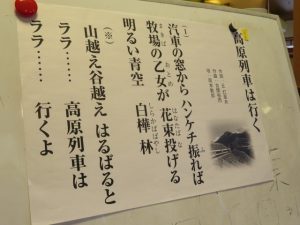 高原列車は行く
(一)
汽車の窓から ハンケチ振れば
牧場の乙女が 花束投げる
明るい青空 白樺林
(※)
山越え谷越え はるばると
ララ…… 高原列車は
ララ…… 行くよ